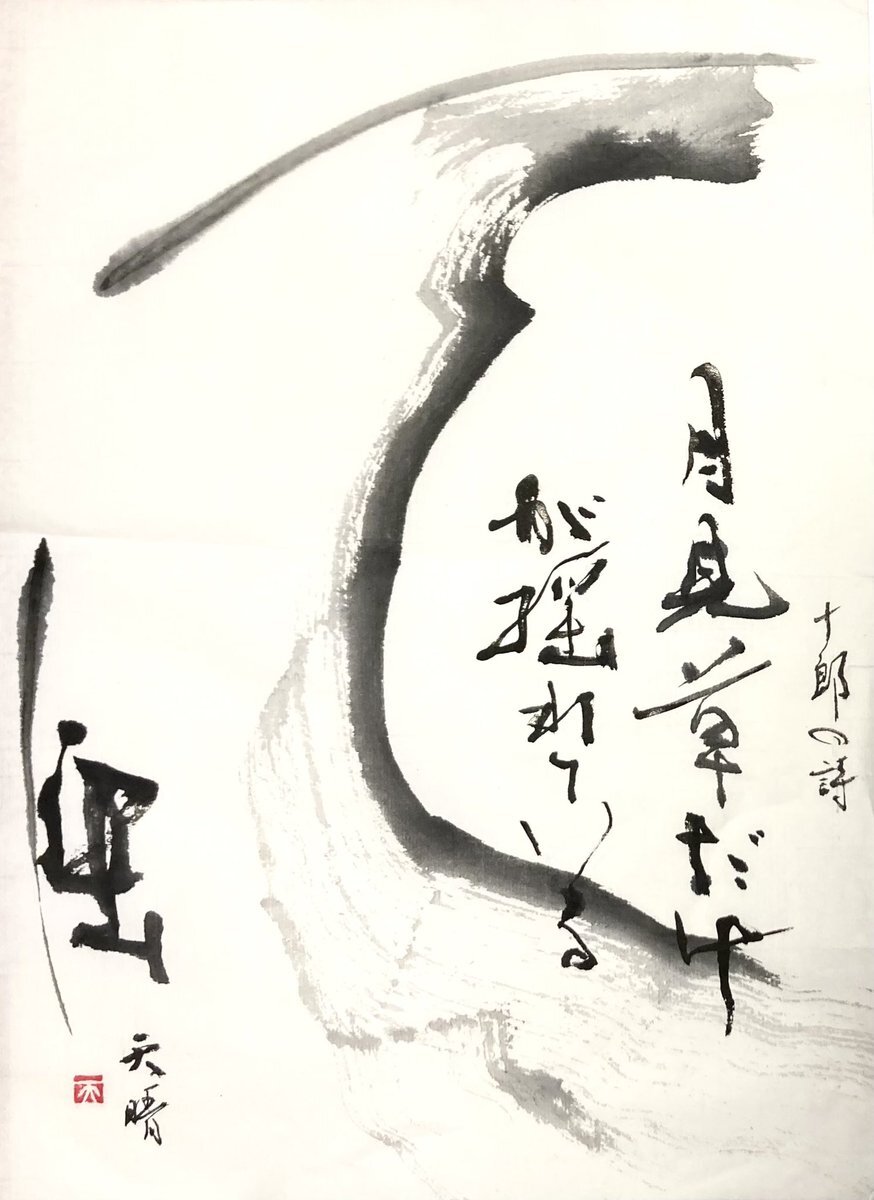 十郎の詩
月見草だけ
が揺れている
天晴